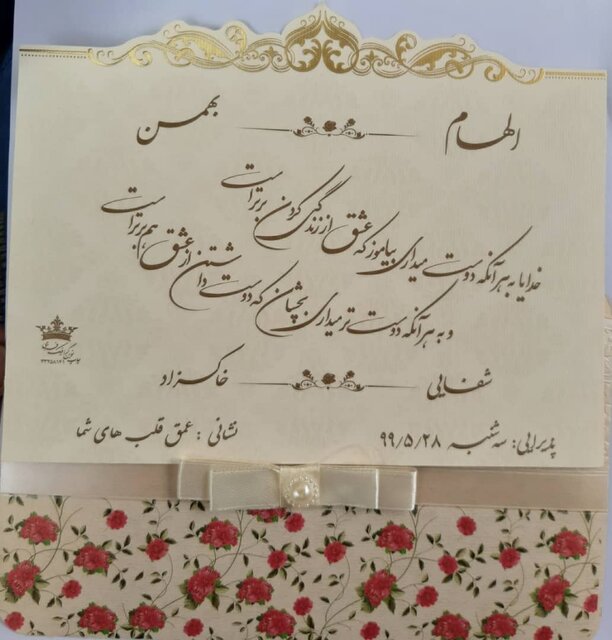 الهام بهمن
خدایا به هر آنکه دوست میداری بیاموز که عشق از زندگی کردن برتر است
و به هر آنکه دوست تر میداری بچشان که دوست داشتن از عشق هم برتر است
شفایی خاکزاد
پذیرایی: سه شنبه ۹۹/۵/۲۸ نشانی: عمق قلب های شما